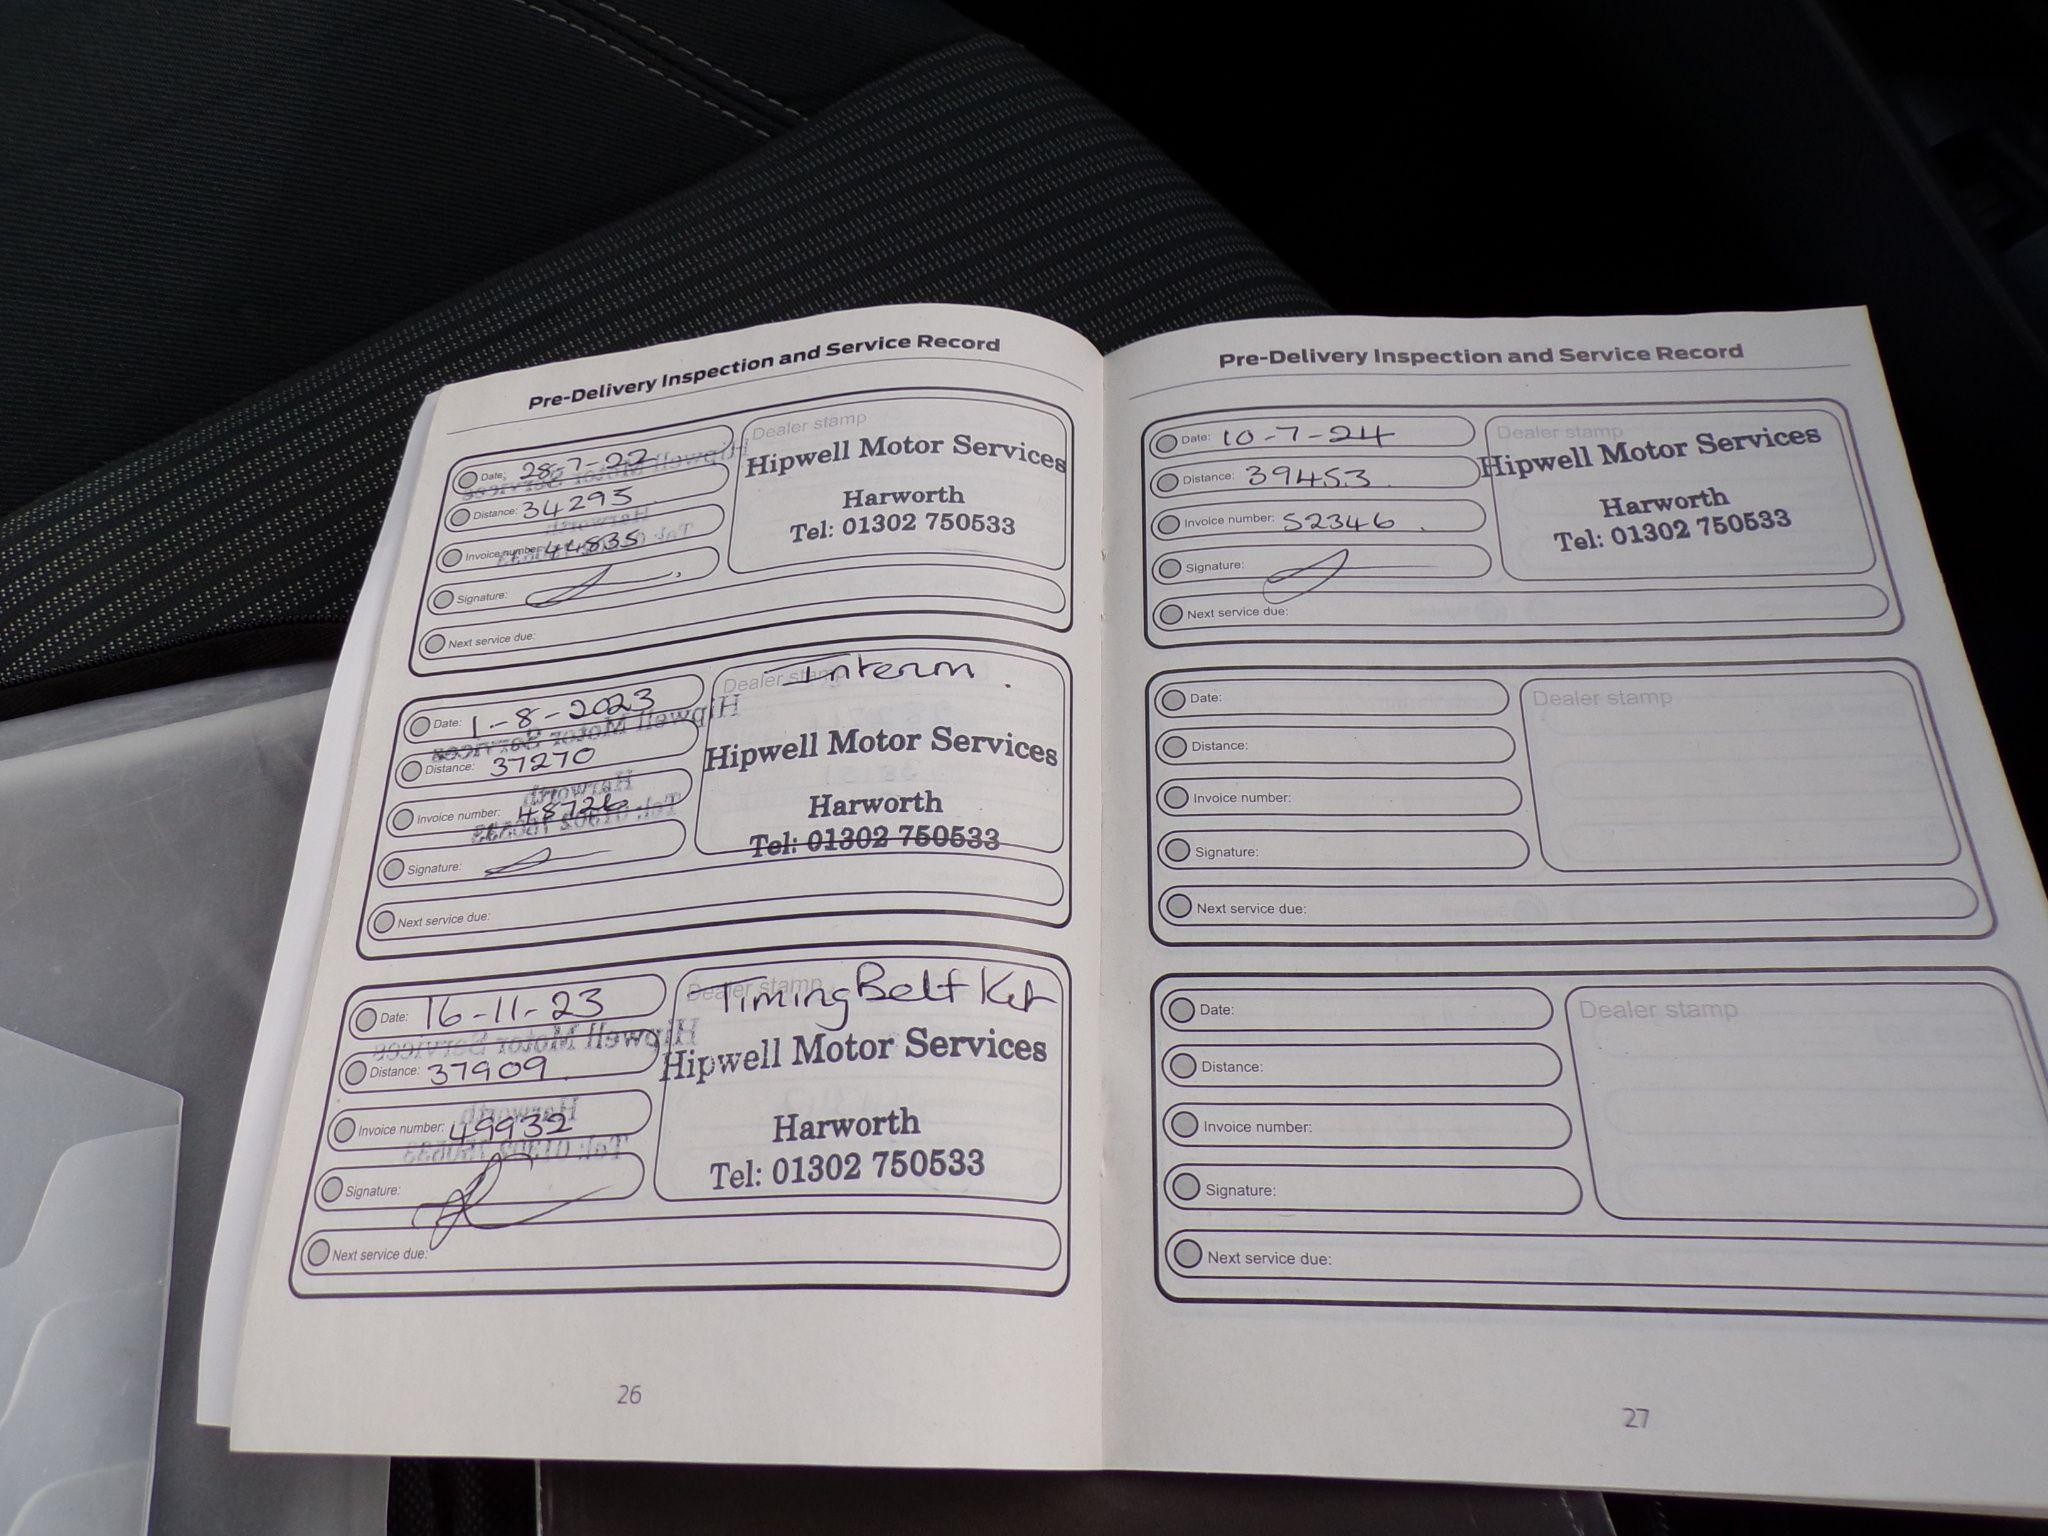 Pre-Delivery Inspection and Service Record
Date: 28-7-22
Distance: 34295
Invoice number: 44835
Signature:
Next service due:
Dealer stamp
Hipwell Motor Services
Harworth
Tel: 01302 750533
Date: 1-8-2023
Distance: 37270
Invoice number: 48726
Signature:
Next service due:
Dealer stamp
Interim
Hipwell Motor Services
Harworth
Tel: 01302 750533
Date: 16-11-23
Distance: 37909
Invoice number: 49932
Signature:
Next service due:
Dealer stamp
Timing Belt Kit
Hipwell Motor Services
Harworth
Tel: 01302 750533
26
Pre-Delivery Inspection and Service Record
Date: 10-7-24
Distance: 39453
Invoice number: 52346
Signature:
Next service due:
Dealer stamp
Hipwell Motor Services
Harworth
Tel: 01302 750533
Date:
Distance:
Invoice number:
Signature:
Next service due:
Dealer stamp
Date:
Distance:
Invoice number:
Signature:
Next service due:
Dealer stamp
27